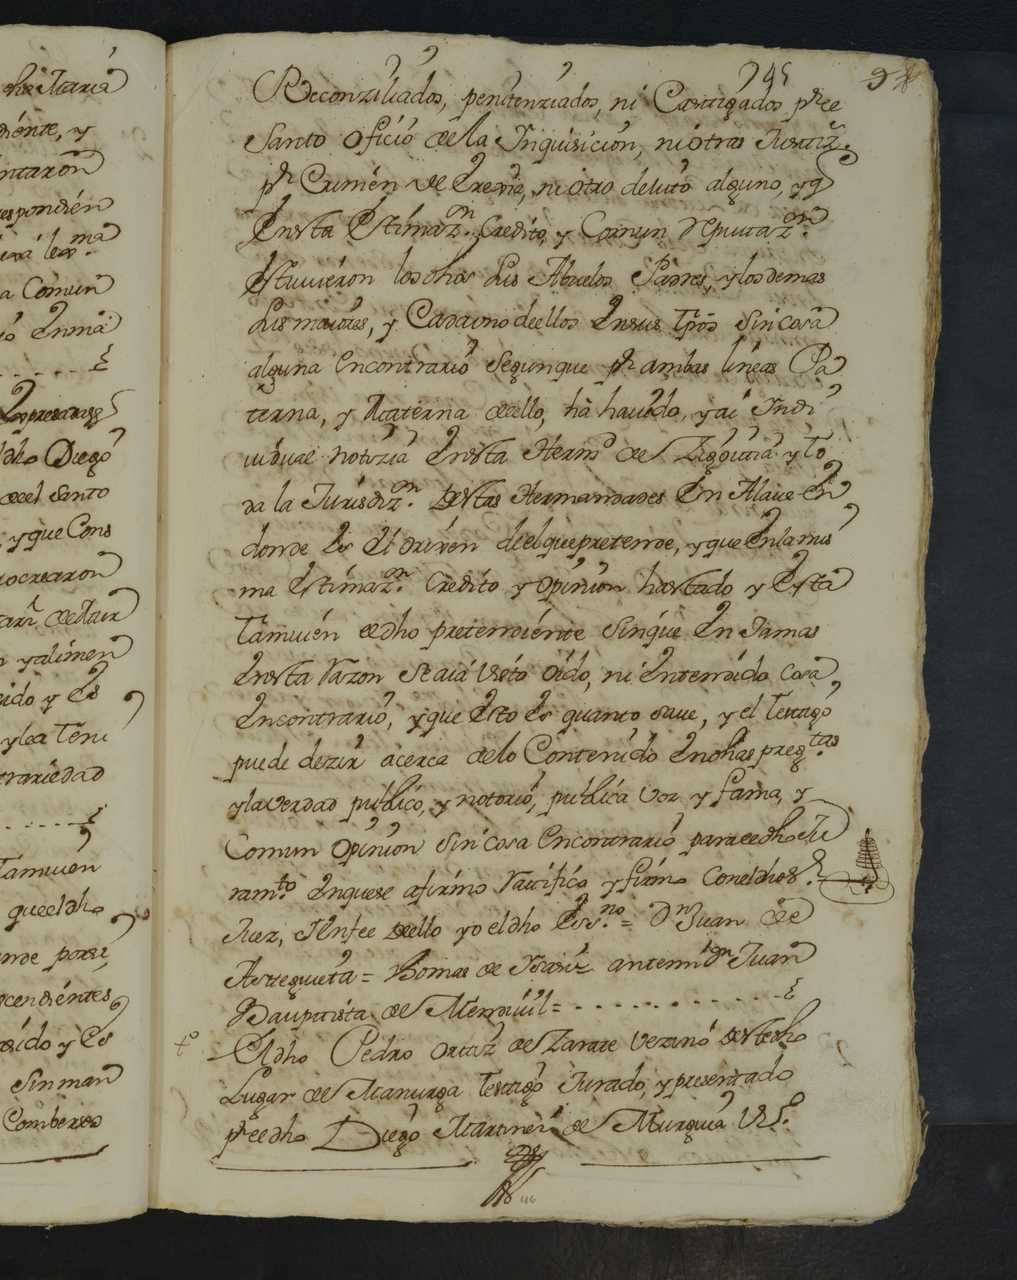 he Maria
diente, y
ntaron
respondien
ma
a Comun
ò en ma
Expresarse
dho Diego
del Santo
, y que Cons
ocrearon
y alimen
cido y Es
y la Tení
trariedad
Tamuien
que el dho
cendientes
cido y Es
Sin man
745
Reconziliados, penitenziados, ni Castigados pr. el
Santo oficio de la Ynquisicion, ni otras Justiz.s
pr Crimen de Eregia, ni otro delito alguno, y q
En esta Estimaz.on Credito, y Comun Reputaz.on
Estuuieron los dhos sus Abuelos Padres, y los demas
sus maiores, y Cada uno de ellos en sus tpos sin cosa
alguna en contrario segun que pr. ambas lineas Pa
terna, y Materna de ello, ha hauido, y ai Yndi
uidual notizia en esta Herm.d de Zigoitia y to
da la Jurisdiz.on destas Hermandades En Alaua En
donde Es el orixen de el que pretende, y que En la mis
ma Estimaz.on Credito y opinion ha estado y Esta
Tamuien el dho pretendiente sin que En Jamas
En esta razon se aia visto oido, ni Entendido cosa
En contrario, y que Esto Es quanto saue, y el Testigo
puede dezir acerca de lo Contenido En dhas preg.tas
y la verdad publico, y notorio, publica voz y fama, y
Comun opinion sin cosa en contrario para el dho Ju
ram.to En que se afirmo Ratifico y firmo con el dho S.r
Juez, Y En fee de ello yo el dho Ess.no = D.n Juan de
Astegueta = Thomas de antemi Juan
Bauptista de Mendiuil =
El dho Pedro Ortiz de Zarate vezino deste dho
Lugar de Manurga Testigo Jurado, y presentado
pr. el dho Diego Martinez de Murguia
116